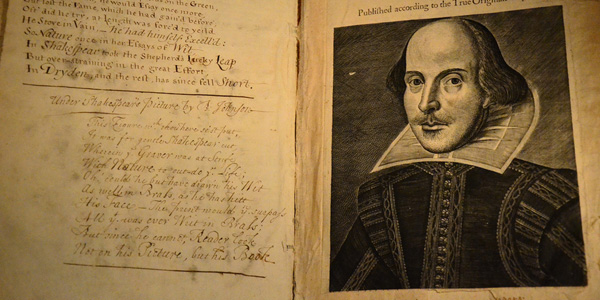 on the Green,
he would Essay once more
the Fame which he had gain'd before,
he err, at length was forc'd to yeild
He Strove in Vain — he had himself Excell'd:
So Nature once in her Essays of Wit
In Shakespear took the Shepherds Lucky Leap
But over-straining in the great Effort,
In Dryden, and the rest, has since fell Short.
Under Shakespears Picture by B: Johnson
This Figure yt thou here seest put,
It was for gentle Shakespear cut
Wherein ye Graver was at Strife
With Nature to out-do ye Life;
Oh, could he but have drawn his Wit
As well in Brass, as he has hitt
His Face — This print would surpass
All yt was ever Writ in Brass;
But since he cannot, Reader look
Not on his Picture, but his Book.
Published according to the True